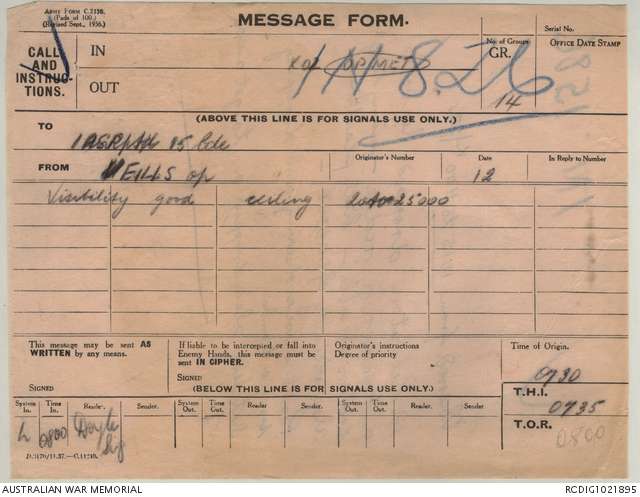 Army Form C.2136.
(Pads of 100.)
(Revised Sept., 1936.)
MESSAGE FORM.
Serial No.
CALL
AND
INSTRUC-
TIONS.
IN
OUT
No. of Groups
GR.
14
OFFICE DATE STAMP
(ABOVE THIS LINE IS FOR SIGNALS USE ONLY.)
TO
15 Bde
FROM
Originator's Number
Date
12
In Reply to Number
Visibility good ceiling 25000
This message may be sent AS
WRITTEN by any means.
SIGNED
If liable to be intercepted or fall into
Enemy Hands, this message must be
sent IN CIPHER.
SIGNED
Originator's instructions
Degree of priority
Time of Origin.
0730
(BELOW THIS LINE IS FOR SIGNALS USE ONLY.)
T.H.I.
0735
T.O.R.
0800
System In.
Time In.
Reader.
Sender.
System Out.
Time Out.
Reader
Sender.
System Out.
Time Out.
Reader
Sender.
L 0800 Doyle
AUSTRALIAN WAR MEMORIAL
RCDIG1021895